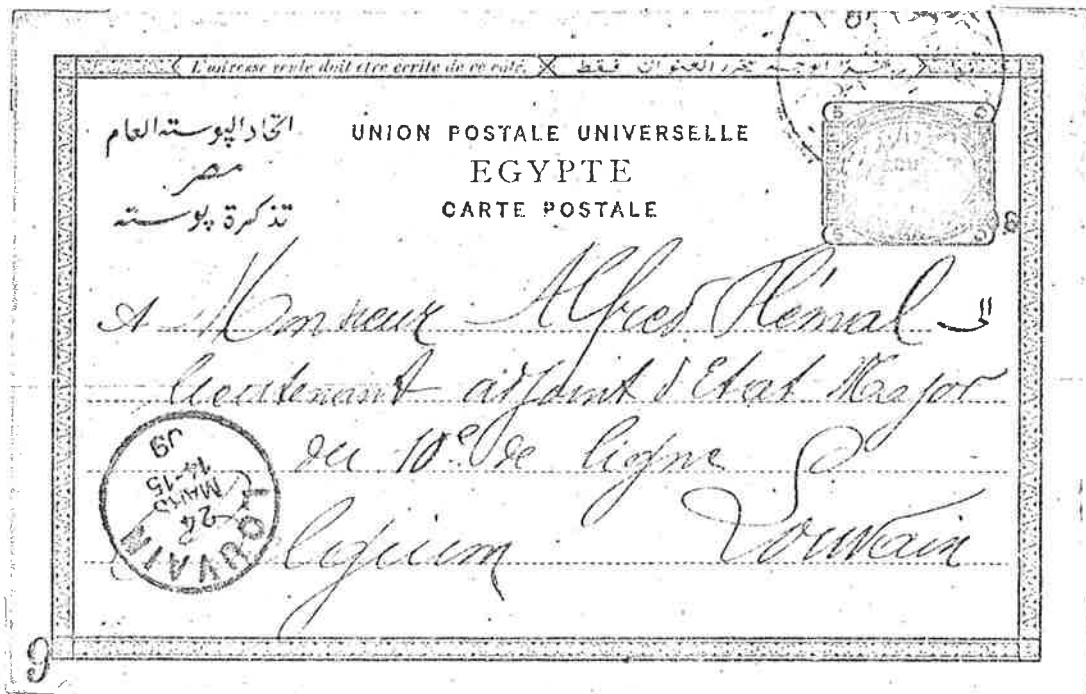 L'adresse seule doit être écrite de ce côté. هذا الوجه يحرر العنوان فقط
اتحاد البوسته العام
مصر
تذكرة بوسته
UNION POSTALE UNIVERSELLE
EGYPTE
CARTE POSTALE
A Monsieur Alfred Hémal
lieutenant adjoint d'Etat Major
du 10e de ligne
Louvain
LOUVAIN
24
MARS
14-15
9